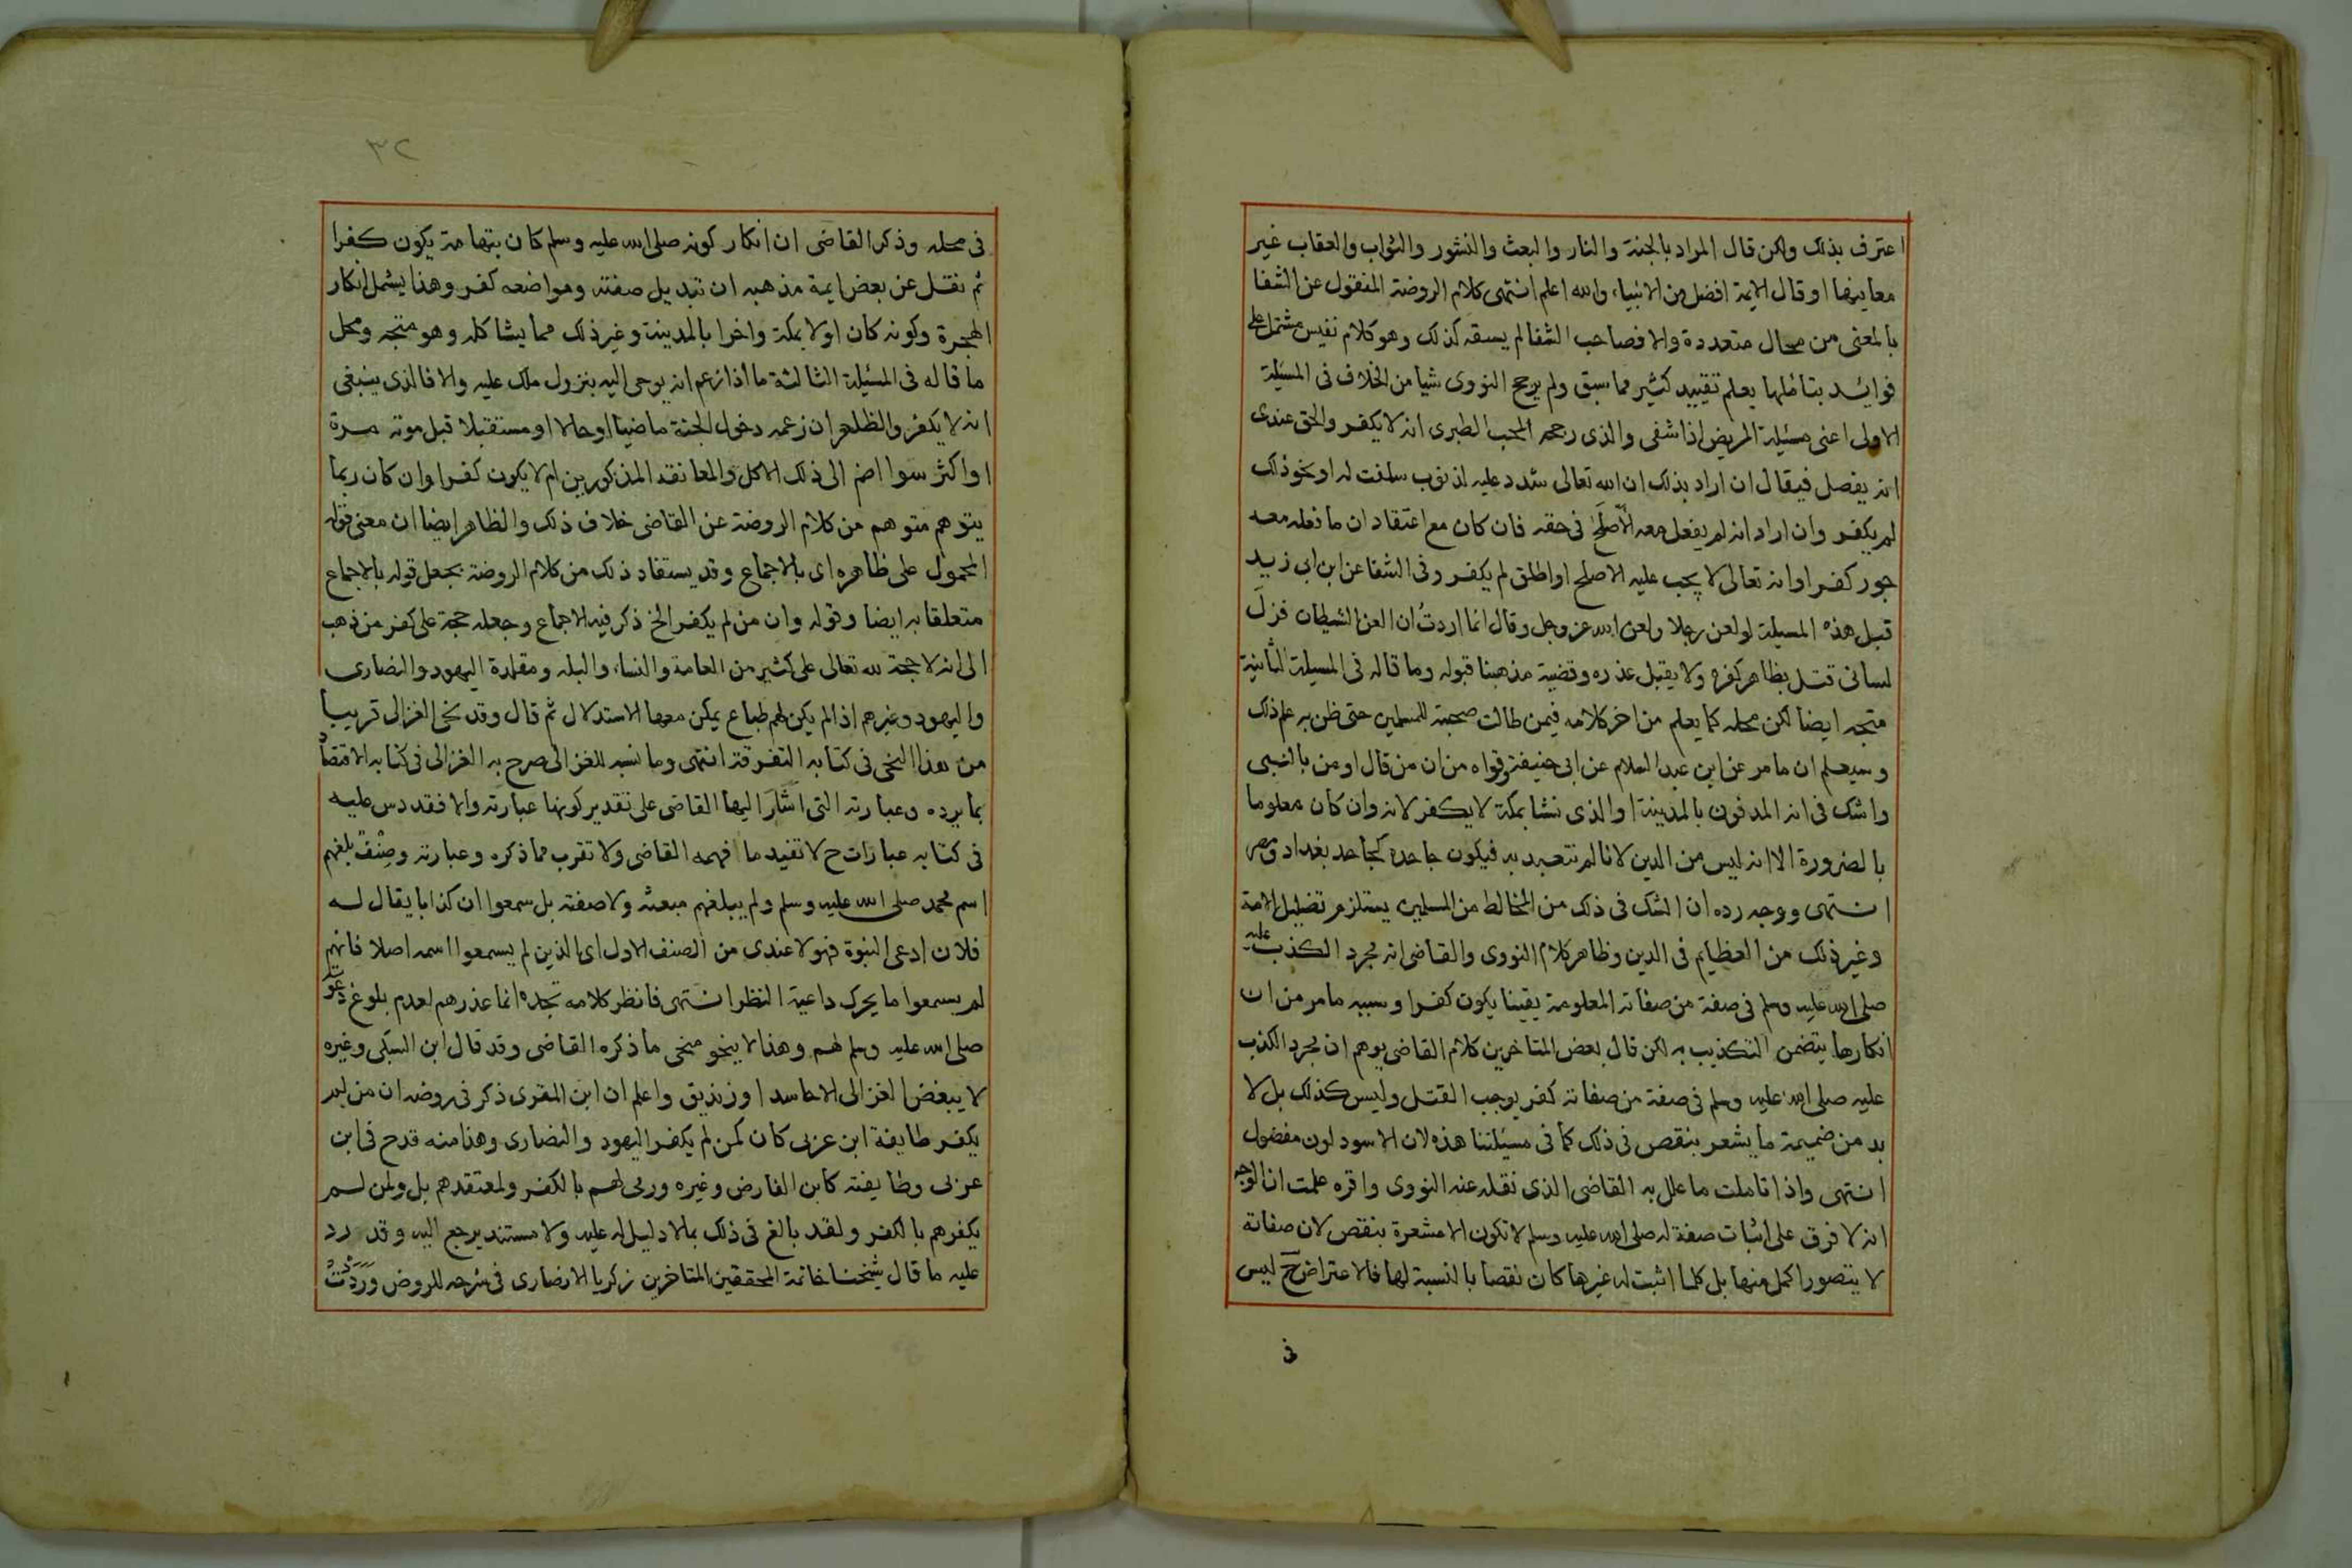 اعترف بذلك ولكن قال المراد بالجنة والنار والبعث والنشور والثواب والعقاب غير
معانيها او قال الايمة افضل من الانبياء والله اعلم انتهى كلام الروضة المنقول عن الشفا
بالمعنى من محال متعددة والا فصاحب الشفا لم يسقه كذلك وهو كلام نفيس مشتمل على
فوائد بتاملها يعلم تقييد كثير مما سبق ولم يرجح النووى شيا من الخلاف فى المسئلة
الاولى اعنى مسئلة المريض اذا شفى والذى رجحه المحب الطبرى انه لا يكفر والحق عندى
انه يفصل فيقال ان اراد بذلك ان الله تعالى شدد عليه لذنوب سلفت له او نحو ذلك
لم يكفر وان اراد انه لم يفعل معه الأصلح فى حقه فان كان مع اعتقاد ان ما فعله معه
جور كفر او انه تعالى لا يجب عليه الاصلح او اطلق لم يكفر وفى الشفا عن ابن ابى زيد
قبل هذه المسيلة لو لعن رجلا ولعن الله عز وجل وقال انما اردتُ ان العن الشيطان فزلّ
لسانى قتل بظاهر كفره ولا يقبل عذره وقضية مذهبنا قبوله وما قاله فى المسيلة الثانية
متجه ايضا لكن محله كما يعلم من اخر كلامه فيمن طالت صحبته للمسلمين حتى ظن به علم ذلك
وسيعلم ان ما مر عن ابن عبد السلام عن ابى حنيفة وقواه من ان من قال اومن بالنبى
واشك فى انه المدفون بالمدينة او الذى نشا بمكة لا يكفر لانه وان كان معلوما
بالضرورة الا انه ليس من الدين لانا لم نتعبد به فيكون جاحده كجاحد بغداد ومصر
انتهى ووجه رده ان الشك فى ذلك من المخالط من المسلمين يستلزم تضليل الامة
وغير ذلك من العظايم فى الدين وظاهر كلام النووى والقاضى انه مجرد الكذب عليه
صلى الله عليه وسلم فى صفة من صفاته المعلومة يقينا يكون كفرا وسببه ما مر من ان
انكارها يتضمن التكذيب به لكن قال بعض المتاخرين كلام القاضى يوهم ان مجرد الكذب
عليه صلى الله عليه وسلم فى صفة من صفاته كفر يوجب القتل وليس كذلك بل لا
بد من ضميمة ما يشعر بنقص فى ذلك كما فى مسئلتنا هذه لان الاسود لون مفضول
انتهى واذا تاملت ما علل به القاضى الذى نقله عنه النووى واقره علمت ان الوجه
انه لا فرق على اثبات صفة له صلى الله عليه وسلم لا تكون الا مشعرة بنقص لان صفاته
لا يتصور اكمل منها بل كلما اثبت له غيرها كان نقصا بالنسبة لها فالاعتراض ح ليس
فى
٣٢
فى محله وذكر القاضى ان انكار كونه صلى الله عليه وسلم كان بتهامة يكون كفرا
ثم نقل عن بعض ايمة مذهبه ان تبديل صفته ومواضعه كفر وهذا يشمل انكار
الهجرة وكونه كان اولا بمكة واخرا بالمدينة وغير ذلك مما يشاكله وهو متجه ومحل
ما قاله فى المسئلة الثالثة ما اذا زعم انه يوحى اليه بنزول ملك عليه والا فالذى ينبغى
انه لا يكفر والظاهر ان زعمه دخول الجنة ماضيا او حالا او مستقبلا قبل موته مرة
او اكثر سوا اضم الى ذلك الاكل والمعانقة المذكورين ام لا يكون كفرا وان كان ربما
يتوهم متوهم من كلام الروضة عن القاضى خلاف ذلك والظاهر ايضا ان معنى قوله
المحمول على ظاهره اى بالاجماع وقد يستفاد ذلك من كلام الروضة بجعل قوله بالاجماع
متعلقا به ايضا وقوله وان من لم يكفر الخ ذكر فيه الاجماع وجعله حجة على كفر من ذهب
الى انه لا حجة لله تعالى على كثير من العامة والنساء والبله ومقلدة اليهود والنصارى
واليهود وغيرهم اذا لم يكن لهم طباع يمكن معها الاستدلال ثم قال وقد نحى الغزالى قريبا
من هذا النحى فى كتابه التفرقة انتهى وما نسبه للغزالى صرح به الغزالى فى كتابه الاقتصاد
بما يرده وعبارته التى اشار اليها القاضى على تقدير كونها عبارته والا فقد دس عليه
فى كتابه عبارات ح لا تفيد ما فهمه القاضى ولا تقرب مما ذكره وعبارته وصنف بلغهم
اسم محمد صلى الله عليه وسلم ولم يبلغهم مبعثه ولا صفته بل سمعوا ان كذابا يقال له
فلان ادعى النبوة فهولا عندى من الصنف الاول اى الذين لم يسمعوا اسمه اصلا فانهم
لم يسمعوا ما يحرك داعية النظر انتهى فانظر كلامه تجده انما عذرهم لعدم بلوغ دعوته
صلى الله عليه وسلم لهم وهذا لا ينحو منحى ما ذكره القاضى وقد قال ابن السبكى وغيره
لا يبغض الغزالى الا حاسد او زنديق واعلم ان ابن المقرى ذكر فى روضه ان من لم
يكفر طايفة ابن عربى كان كمن لم يكفر اليهود والنصارى وهذا منه قدح فى ابن
عربى وطايفته كابن الفارض وغيره ورمى لهم بالكفر ولمعتقدهم بل ولمن لم
يكفرهم بالكفر ولقد بالغ فى ذلك بما لا دليل له عليه ولا مستند يرجع اليه وقد رد
عليه ما قال شيخنا خاتمة المحققين المتاخرين زكريا الانصارى فى شرحه للروض وَرَدَدْتُ